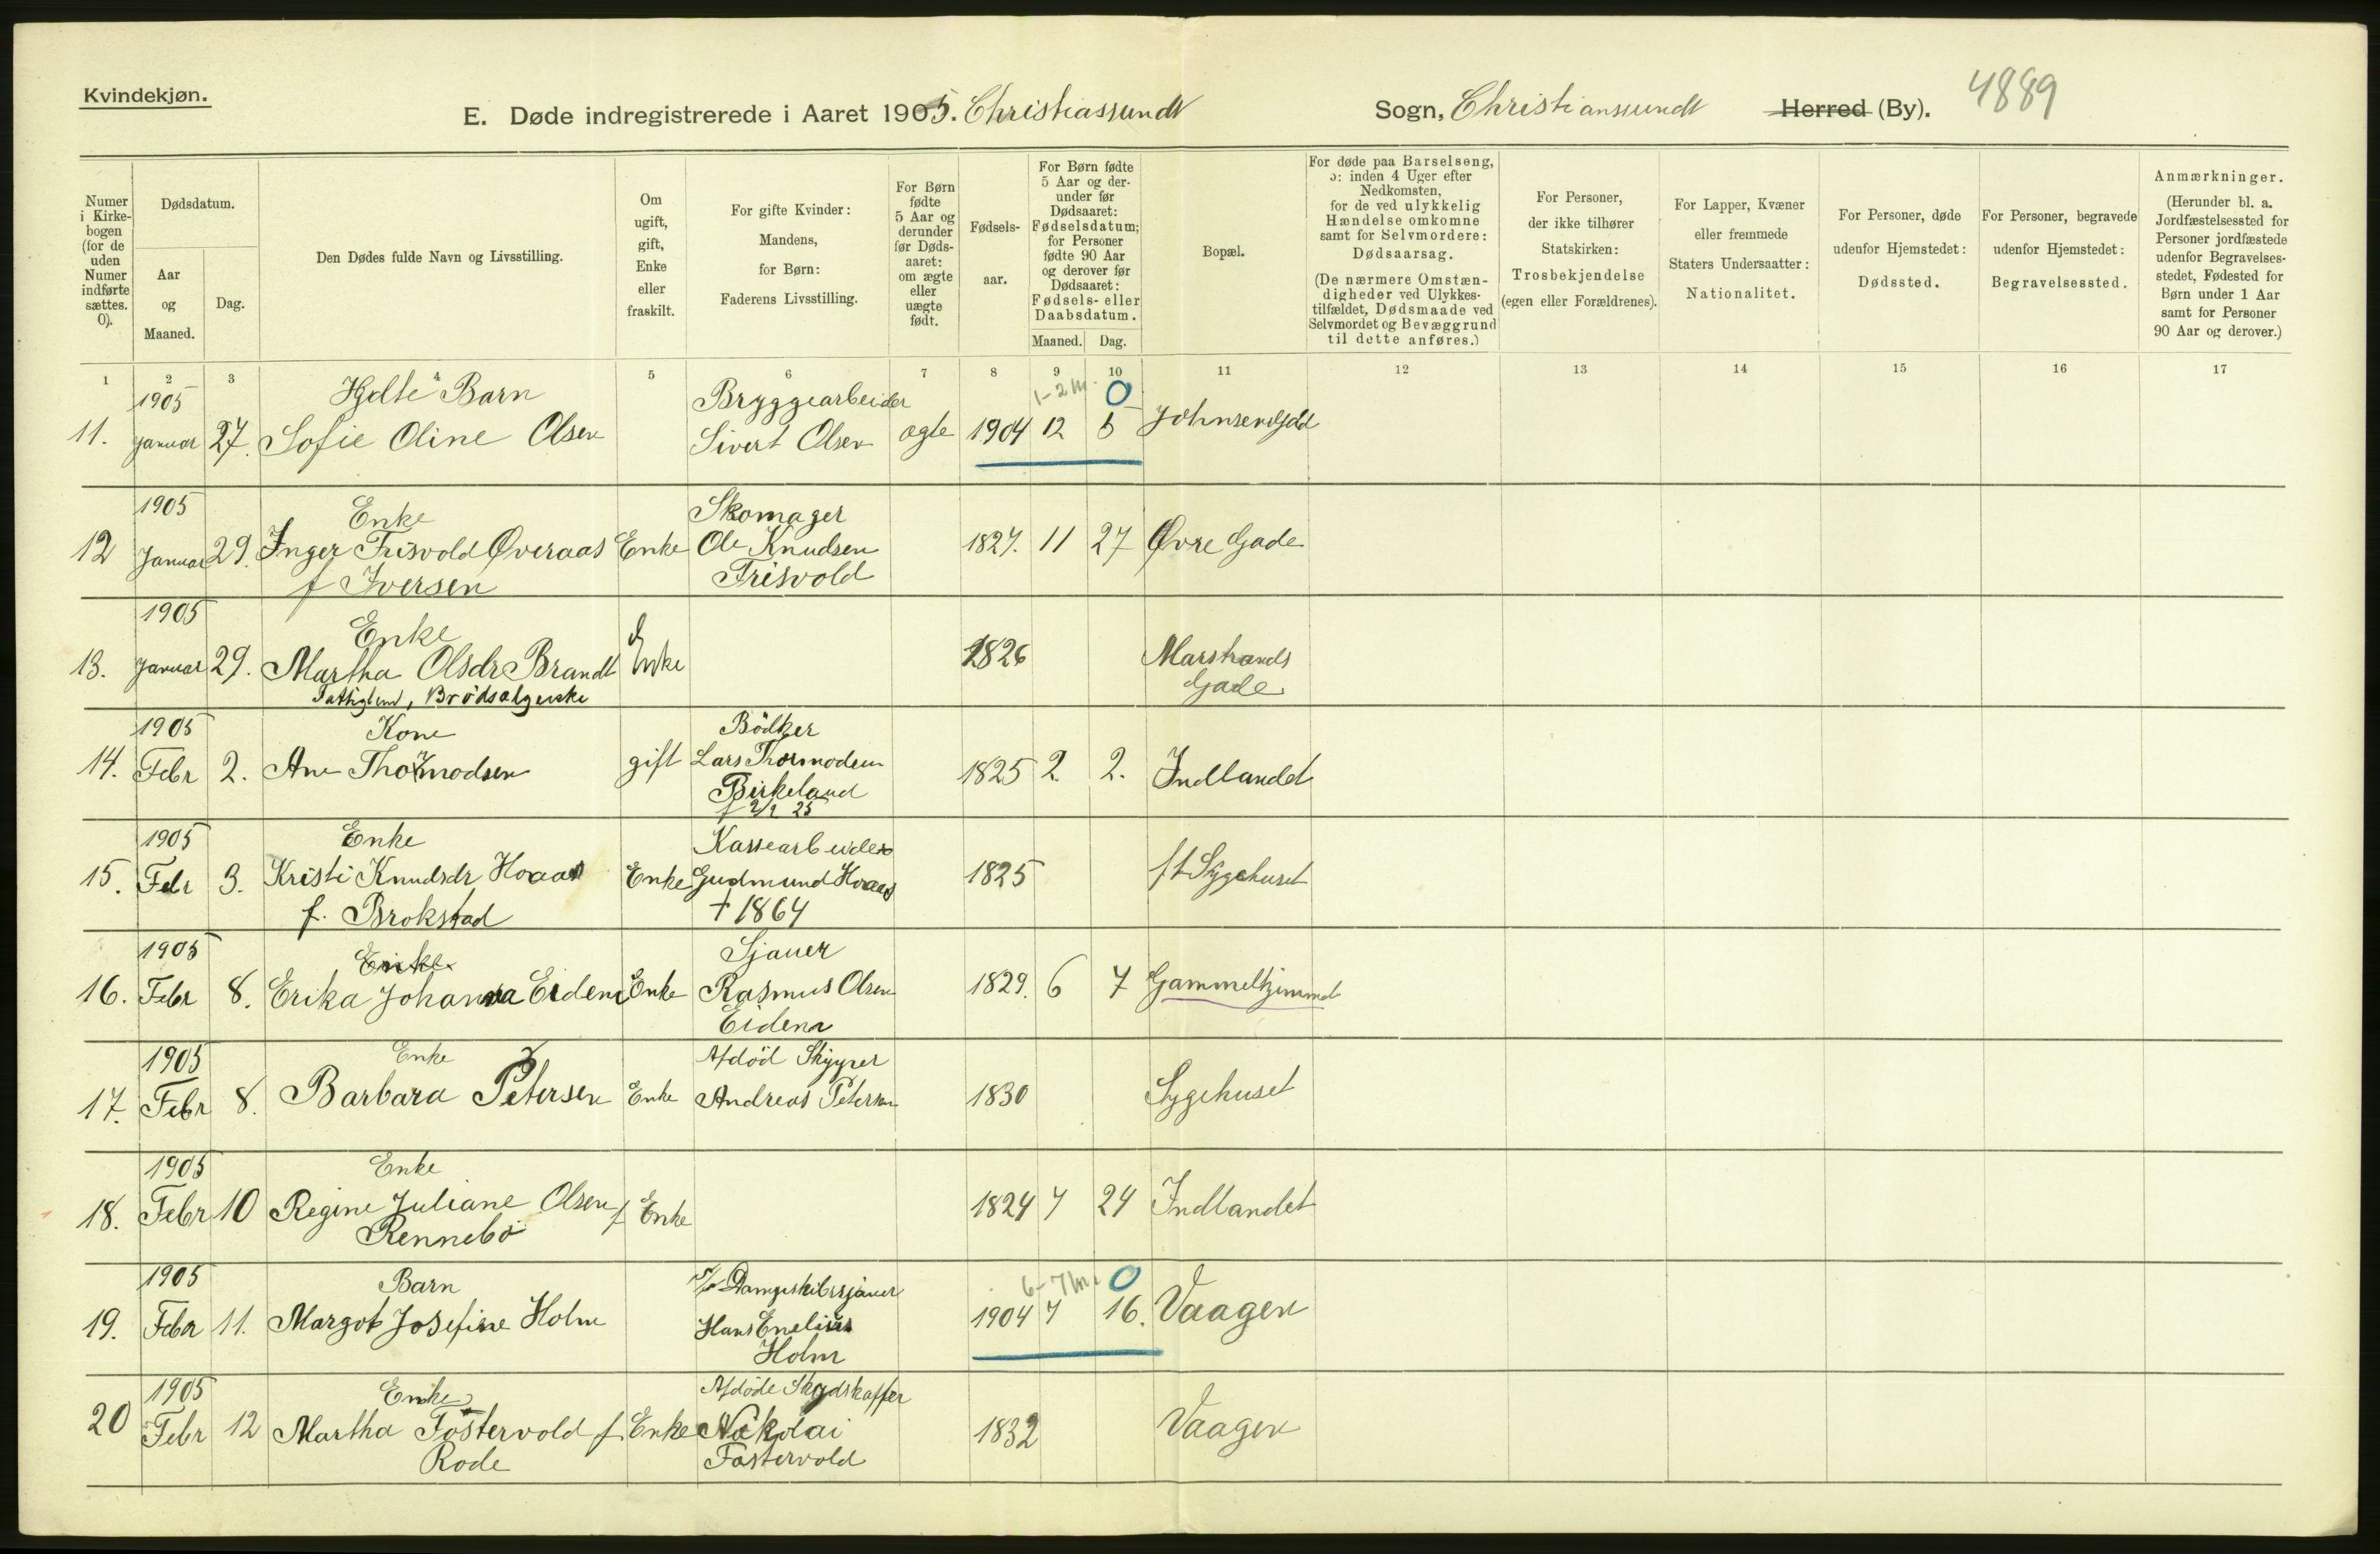 Kvindekjøn.
E. Døde indregistrerede i Aaret 1905. Christiassundt Sogn, Christianssundt Herred (By). 4889
Numer i Kirkebogen (for de uden Numer indførte sættes. 0).
Dødsdatum.
Aar og Maaned.
Dag.
Den Dødes fulde Navn og Livsstilling.
Om ugift, gift, Enke eller fraskilt.
For gifte Kvinder: Mandens, for Børn: Faderens Livsstilling.
For Børn fødte 5 Aar og derunder før Dødsaaret: om ægte eller uægte født.
Fødselsaar.
For Børn fødte 5 Aar og derunder før Dødsaaret: Fødselsdatum; for Personer fødte 90 Aar og derover før Dødsaaret: Fødsels- eller Daabsdatum.
Maaned. Dag.
Bopæl.
For døde paa Barselseng, ɔ: inden 4 Uger efter Nedkomsten, for de ved ulykkelig Hændelse omkomne samt for Selvmordere: Dødsaarsag.
(De nærmere Omstændigheder ved Ulykkestilfældet, Dødsmaade ved Selvmordet og Bevæggrund til dette anføres.)
For Personer, der ikke tilhører Statskirken: Trosbekjendelse (egen eller Forældrenes).
For Lapper, Kvæner eller fremmede Staters Undersaatter: Nationalitet.
For Personer, døde udenfor Hjemstedet: Dødssted.
For Personer, begravede udenfor Hjemstedet: Begravelsessted.
Anmærkninger.
(Herunder bl. a. Jordfæstelsessted for Personer jordfæstede udenfor Begravelsesstedet, Fødested for Børn under 1 Aar samt for Personer 90 Aar og derover.)
1 2 3 4 5 6 7 8 9 10 11 12 13 14 15 16 17
1905 Barn Bryggearbeider 1-2 m. 0
11. Januar 27. Sofie Oline Olsen Sivert Olsen ægte 1904 12 5
1905 Enke Skomager
12 Januar 29. Inger Frisvold Øveraas Enke Ole Knudsen 1827. 11 27 Øvre Gade
f Iversen Frisvold
1905 Enke
13. Januar 29. Martha Olsdr Brandt Enke 1826 Marstrands
Brödsælgerske Gade
1905 Kone Bödker
14. Febr 2. Ane Thormodsen gift Lars Thormodsen 1825 2. 2. Indlandet
Birkeland
f 2/2 25
1905 Enke Kassearbeider
15. Febr 3. Kristi Knudsdr Hoaas Enke Gudmund Hoaas 1825 Sygehuset
f. Brokstad † 1864
1905 Enke Sjauer
16. Febr 8. Erika Johanna Eidem Enke Rasmus Olsen 1829. 6 7
Eidem
1905 Enke Afdöd Skipper
17. Febr 8. Barbara Petersen Enke Andreas Petersen 1830 Sygehuset
1905 Enke
18. Febr 10 Regine Juliane Olsen f Enke 1824 7 24 Indlandet
Rennebö
1905 Barn Dampskibssjauer 6-7 m. 0
19. Febr 11. Margot Josefine Holm Hans Enelius 1904 7 16. Vaagen
Holm
1905 Enke Afdöde Skydskaffer
20 Febr 12 Martha Fostervold f Enke Nikolai 1832 Vaagen
Rode Fostervold